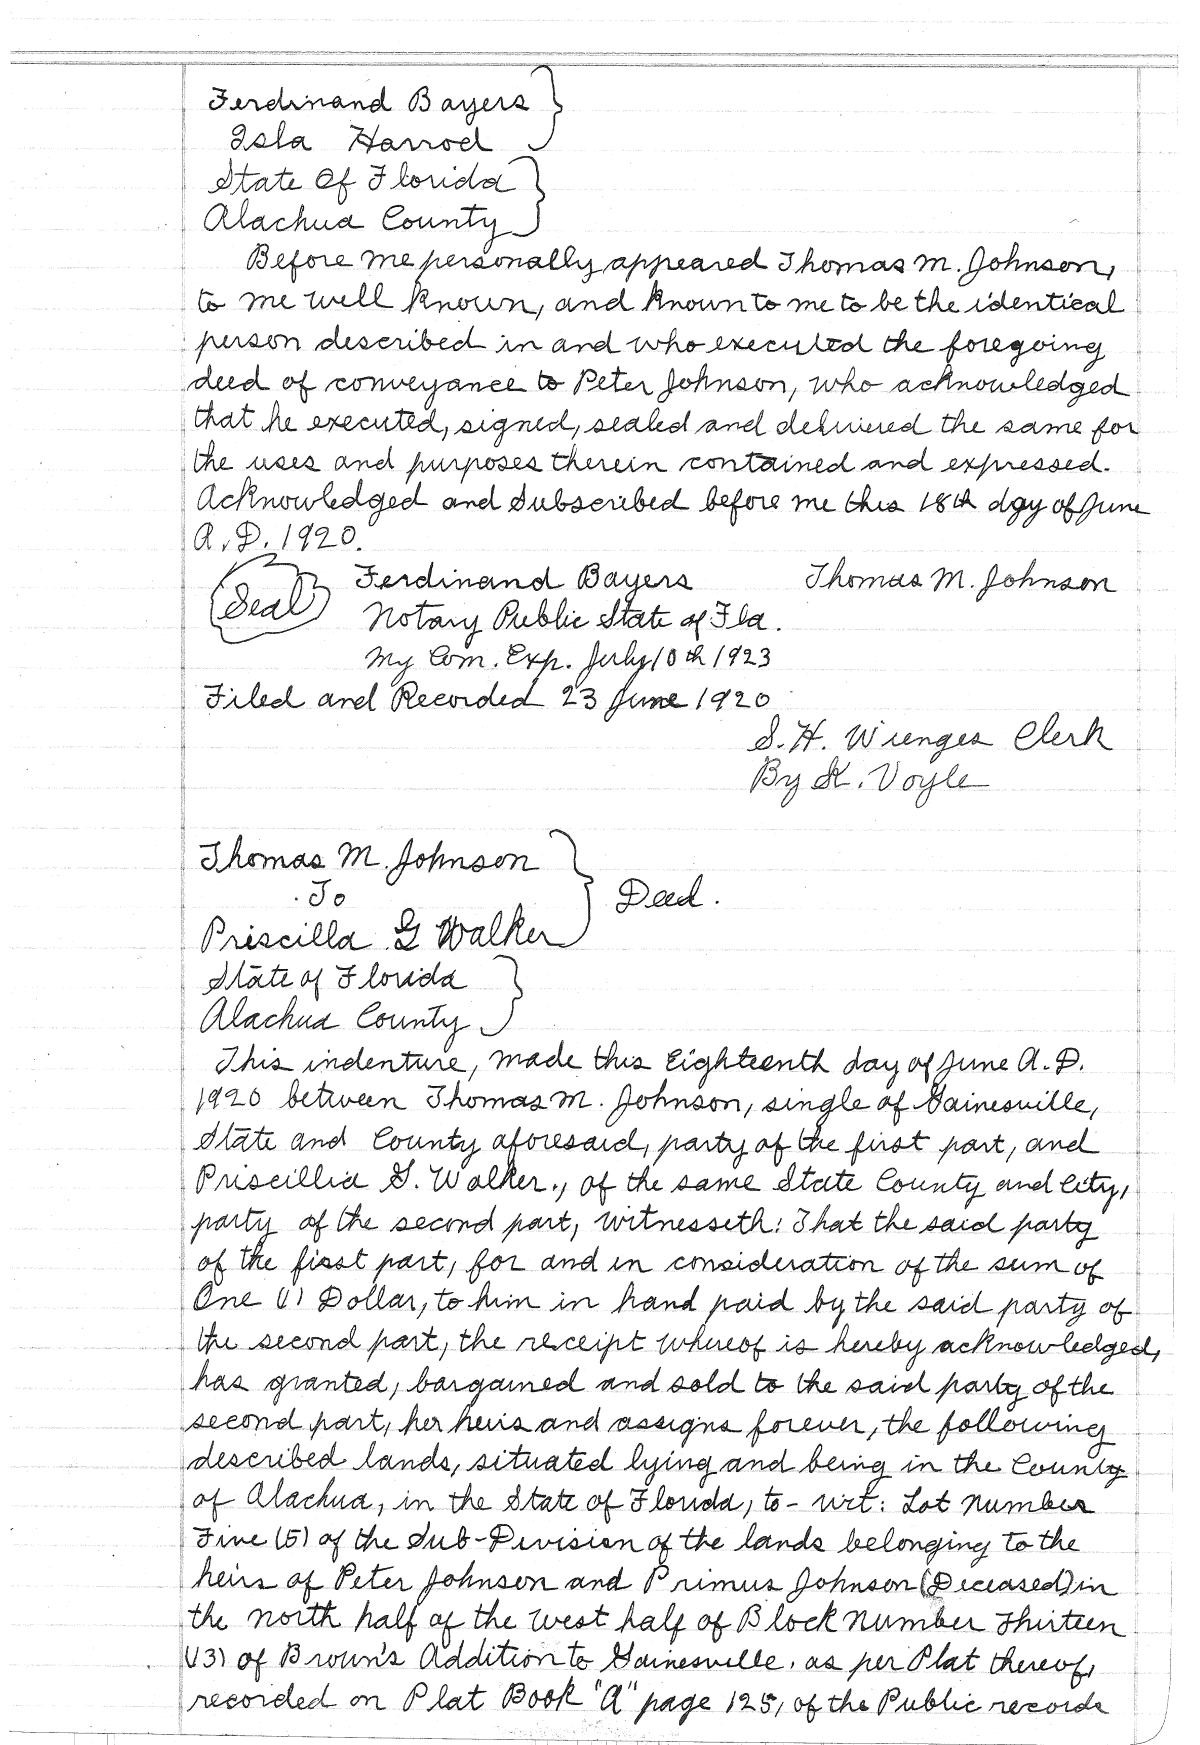 Ferdinand Bayers
Isla Harrod
State Of Florida
Alachua County
Before me personally appeared Thomas M. Johnson,
to me well known, and known to me to be the identical
person described in and who executed the foregoing
deed of conveyance to Peter Johnson, who acknowledged
that he executed, signed, sealed and delivered the same for
the uses and purposes therein contained and expressed.
Acknowledged and Subscribed before me this 18th day of June
A.D. 1920.
Ferdinand Bayers Thomas M. Johnson
(Seal) Notary Public State of Fla.
My Com. Exp. July 10th 1923
Filed and Recorded 23 June 1920
S. H. Wienges Clerk
By K. Voyle
Thomas M. Johnson
To Deed.
Priscilla G Walker
State of Florida
Alachua County
This indenture, made this Eighteenth day of June A.D.
1920 between Thomas M. Johnson, single of Gainesville,
State and County aforesaid, party of the first part, and
Priscillia G. Walker., of the same State County and City,
party of the second part, witnesseth: That the said party
of the first part, for and in consideration of the sum of
One (1) Dollar, to him in hand paid by the said party of
the second part, the receipt whereof is hereby acknowledged,
has granted, bargained and sold to the said party of the
second part, her heirs and assigns forever, the following
described lands, situated lying and being in the County
of Alachua, in the State of Florida, to-wit: Lot Number
Five (5) of the Sub-Division of the lands belonging to the
heirs of Peter Johnson and Primus Johnson (Deceased) in
the north half of the west half of Block Number Thirteen
(13) of Brown's Addition to Gainesville, as per Plat thereof,
recorded on Plat Book "A" page 125, of the Public records